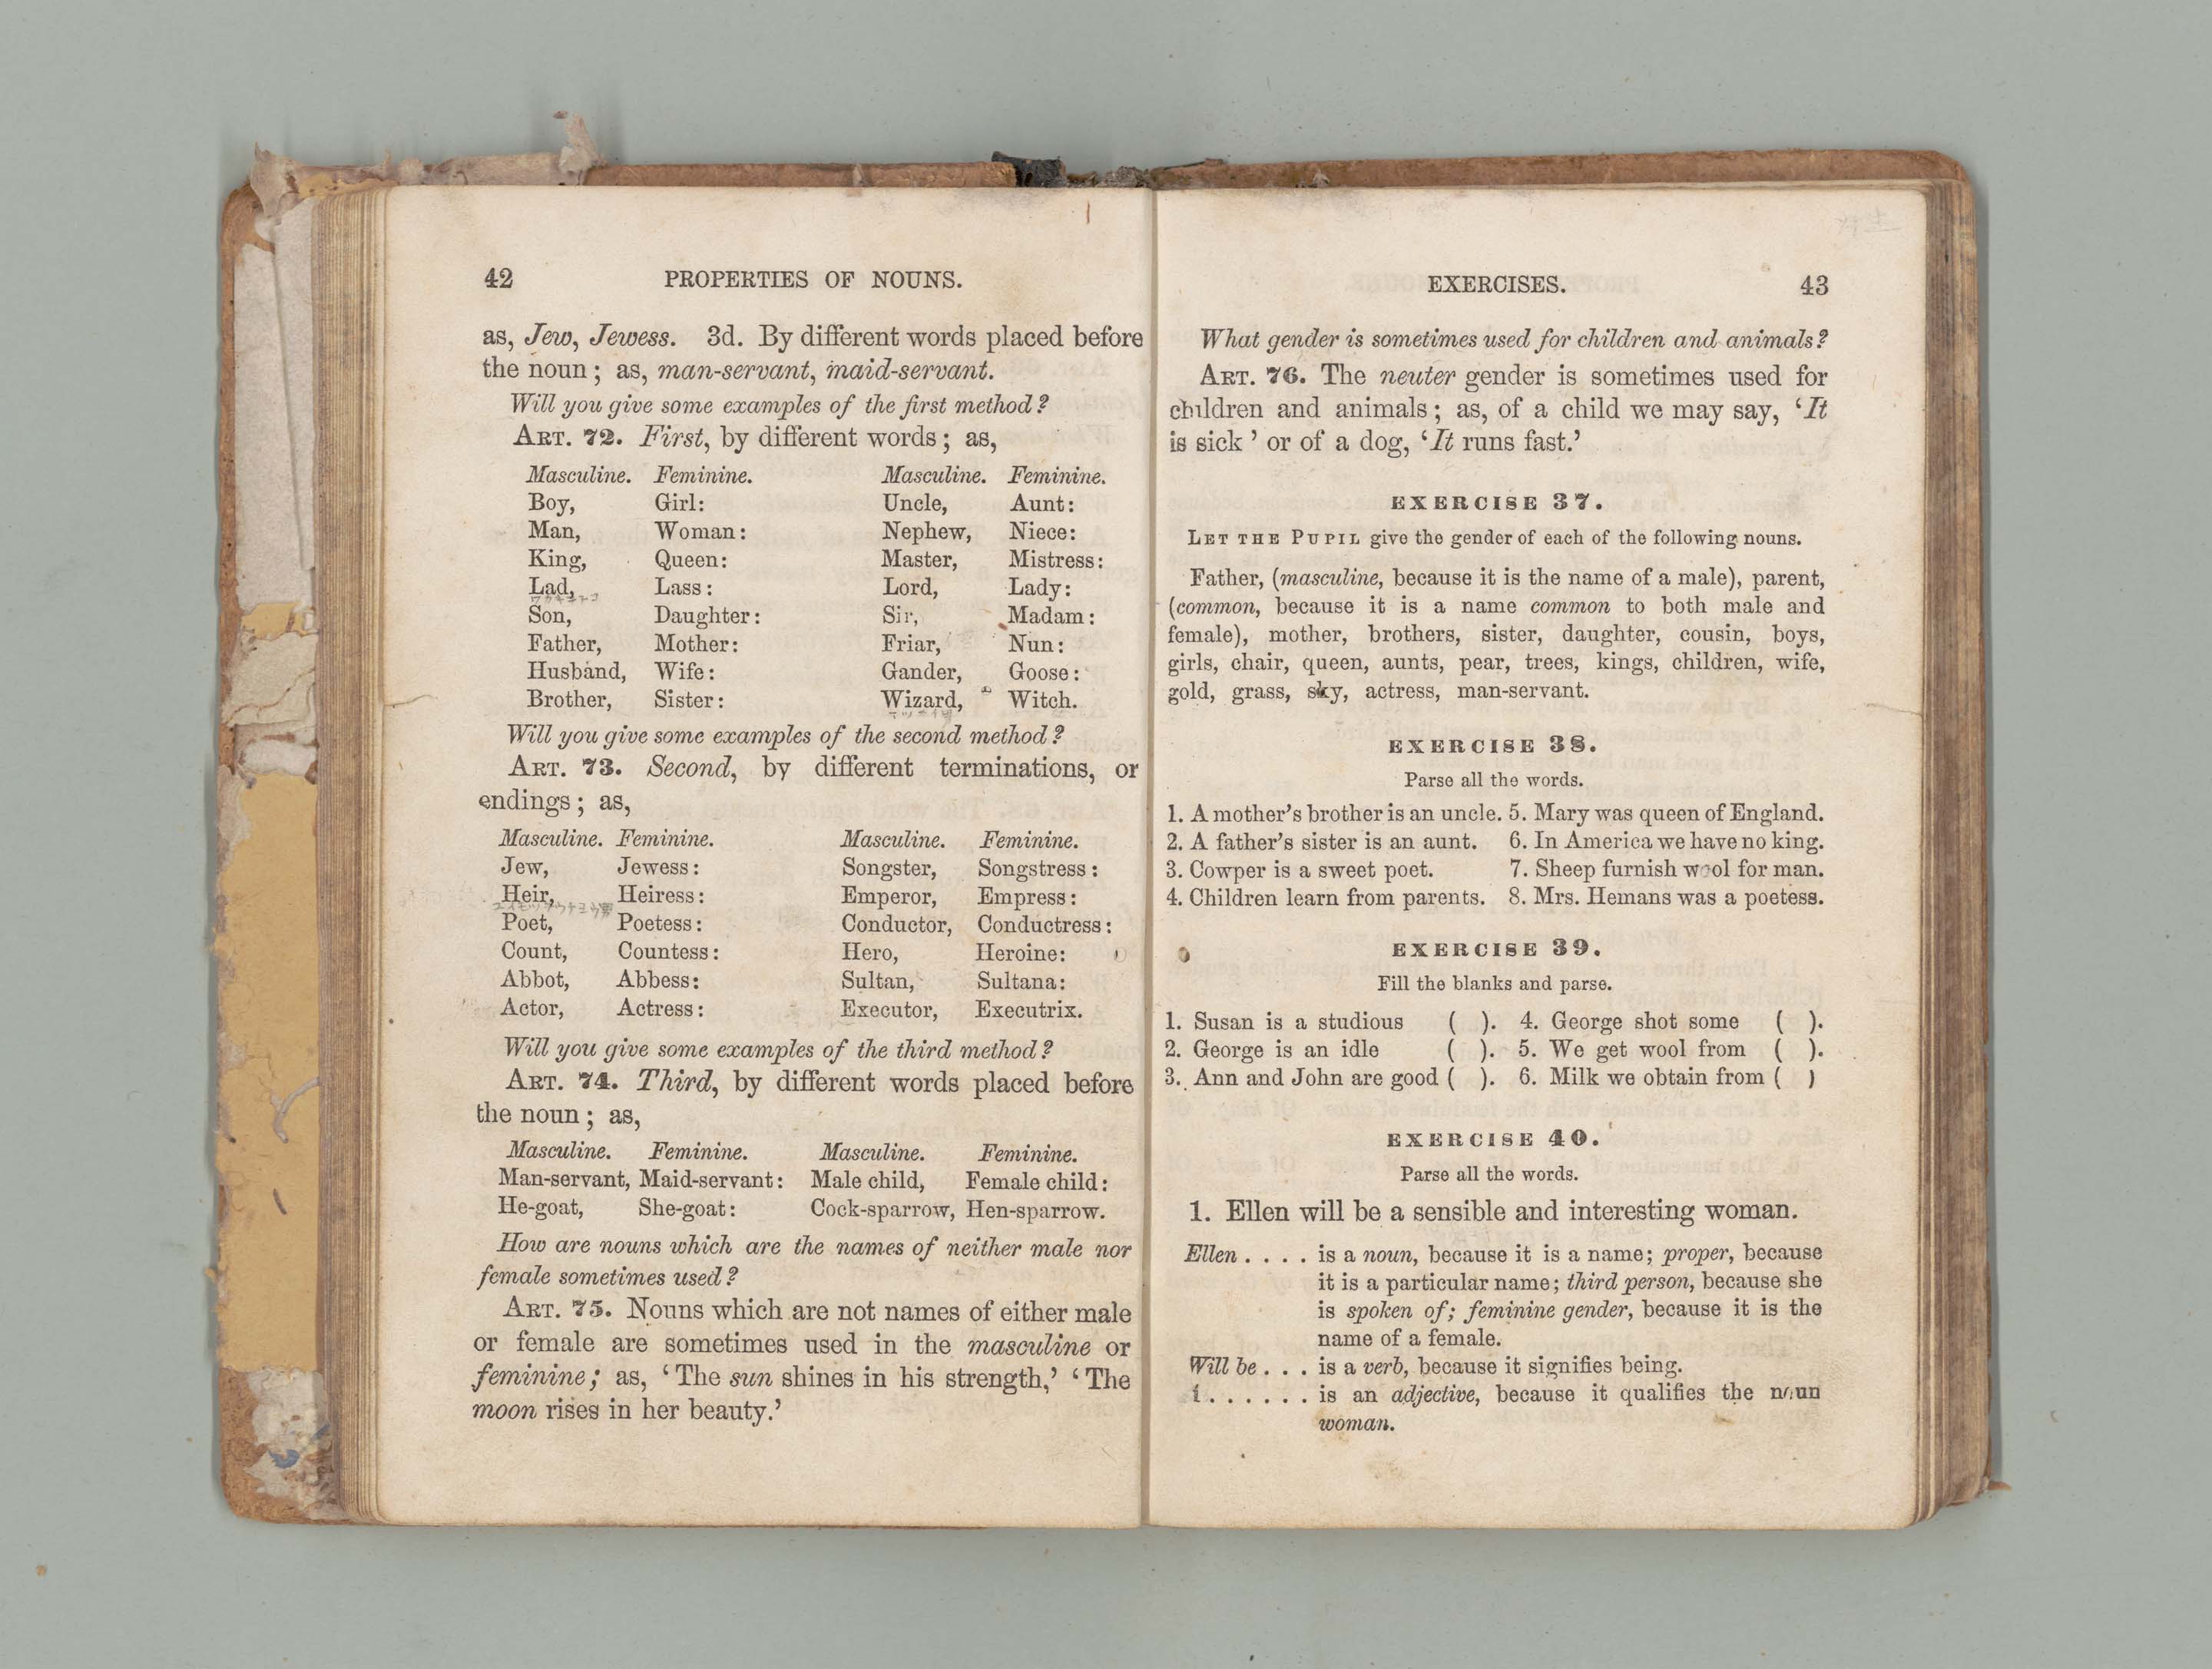 42 PROPERTIES OF NOUNS.
as, Jew, Jewess. 3d. By different words placed before
the noun; as, man-servant, maid-servant.
Will you give some examples of the first method?
ART. 72. First, by different words; as,
Masculine. Feminine. Masculine. Feminine.
Boy, Girl: Uncle, Aunt:
Man, Woman: Nephew, Niece:
King, Queen: Master, Mistress:
Lad, Lass: Lord, Lady:
Son, Daughter: Sir, Madam:
Father, Mother: Friar, Nun:
Husband, Wife: Gander, Goose:
Brother, Sister: Wizard, Witch.
Will you give some examples of the second method?
ART. 73. Second, by different terminations, or
endings; as,
Masculine. Feminine. Masculine. Feminine.
Jew, Jewess: Songster, Songstress:
Heir, Heiress: Emperor, Empress:
Poet, Poetess: Conductor, Conductress:
Count, Countess: Hero, Heroine:
Abbot, Abbess: Sultan, Sultana:
Actor, Actress: Executor, Executrix.
Will you give some examples of the third method?
ART. 74. Third, by different words placed before
the noun; as,
Masculine. Feminine. Masculine. Feminine.
Man-servant, Maid-servant: Male child, Female child:
He-goat, She-goat: Cock-sparrow, Hen-sparrow.
How are nouns which are the names of neither male nor
female sometimes used?
ART. 75. Nouns which are not names of either male
or female are sometimes used in the masculine or
feminine; as, ‘The sun shines in his strength,’ ‘The
moon rises in her beauty.’
EXERCISES. 43
What gender is sometimes used for children and animals?
ART. 76. The neuter gender is sometimes used for
children and animals; as, of a child we may say, ‘It
is sick’ or of a dog, ‘It runs fast.’
EXERCISE 37.
LET THE PUPIL give the gender of each of the following nouns.
Father, (masculine, because it is the name of a male), parent,
(common, because it is a name common to both male and
female), mother, brothers, sister, daughter, cousin, boys,
girls, chair, queen, aunts, pear, trees, kings, children, wife,
gold, grass, sky, actress, man-servant.
EXERCISE 38.
Parse all the words.
1. A mother’s brother is an uncle. 5. Mary was queen of England.
2. A father’s sister is an aunt. 6. In America we have no king.
3. Cowper is a sweet poet. 7. Sheep furnish wool for man.
4. Children learn from parents. 8. Mrs. Hemans was a poetess.
EXERCISE 39.
Fill the blanks and parse.
1. Susan is a studious ( ). 4. George shot some ( ).
2. George is an idle ( ). 5. We get wool from ( ).
3. Ann and John are good ( ). 6. Milk we obtain from ( )
EXERCISE 40.
Parse all the words.
1. Ellen will be a sensible and interesting woman.
Ellen . . . . is a noun, because it is a name; proper, because
it is a particular name; third person, because she
is spoken of; feminine gender, because it is the
name of a female.
Will be . . . is a verb, because it signifies being.
. . . . . . is an adjective, because it qualifies the noun
woman.